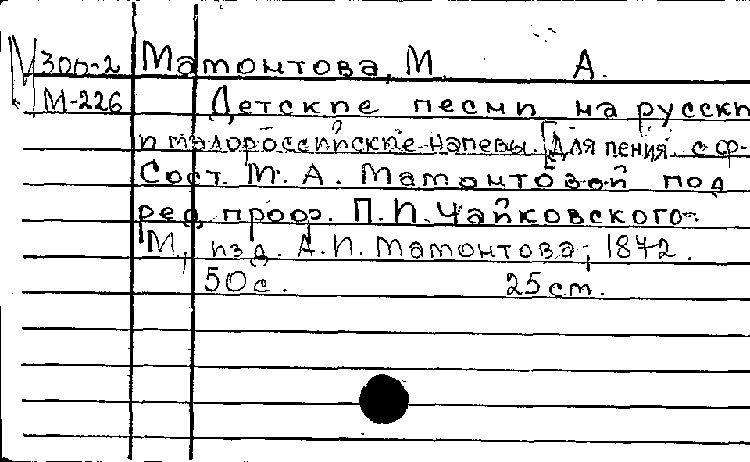 М 300-2 Мамонтова, М. А.
М-226 Детские песни на русски
и малороссийские напевы. [Для пения с ф-
Сост. М. А. Мамонтовой под
ред. проф. П. И. Чайковского.
М., изд. А. И. Мамонтова, 1872.
50 с. 25 cm.